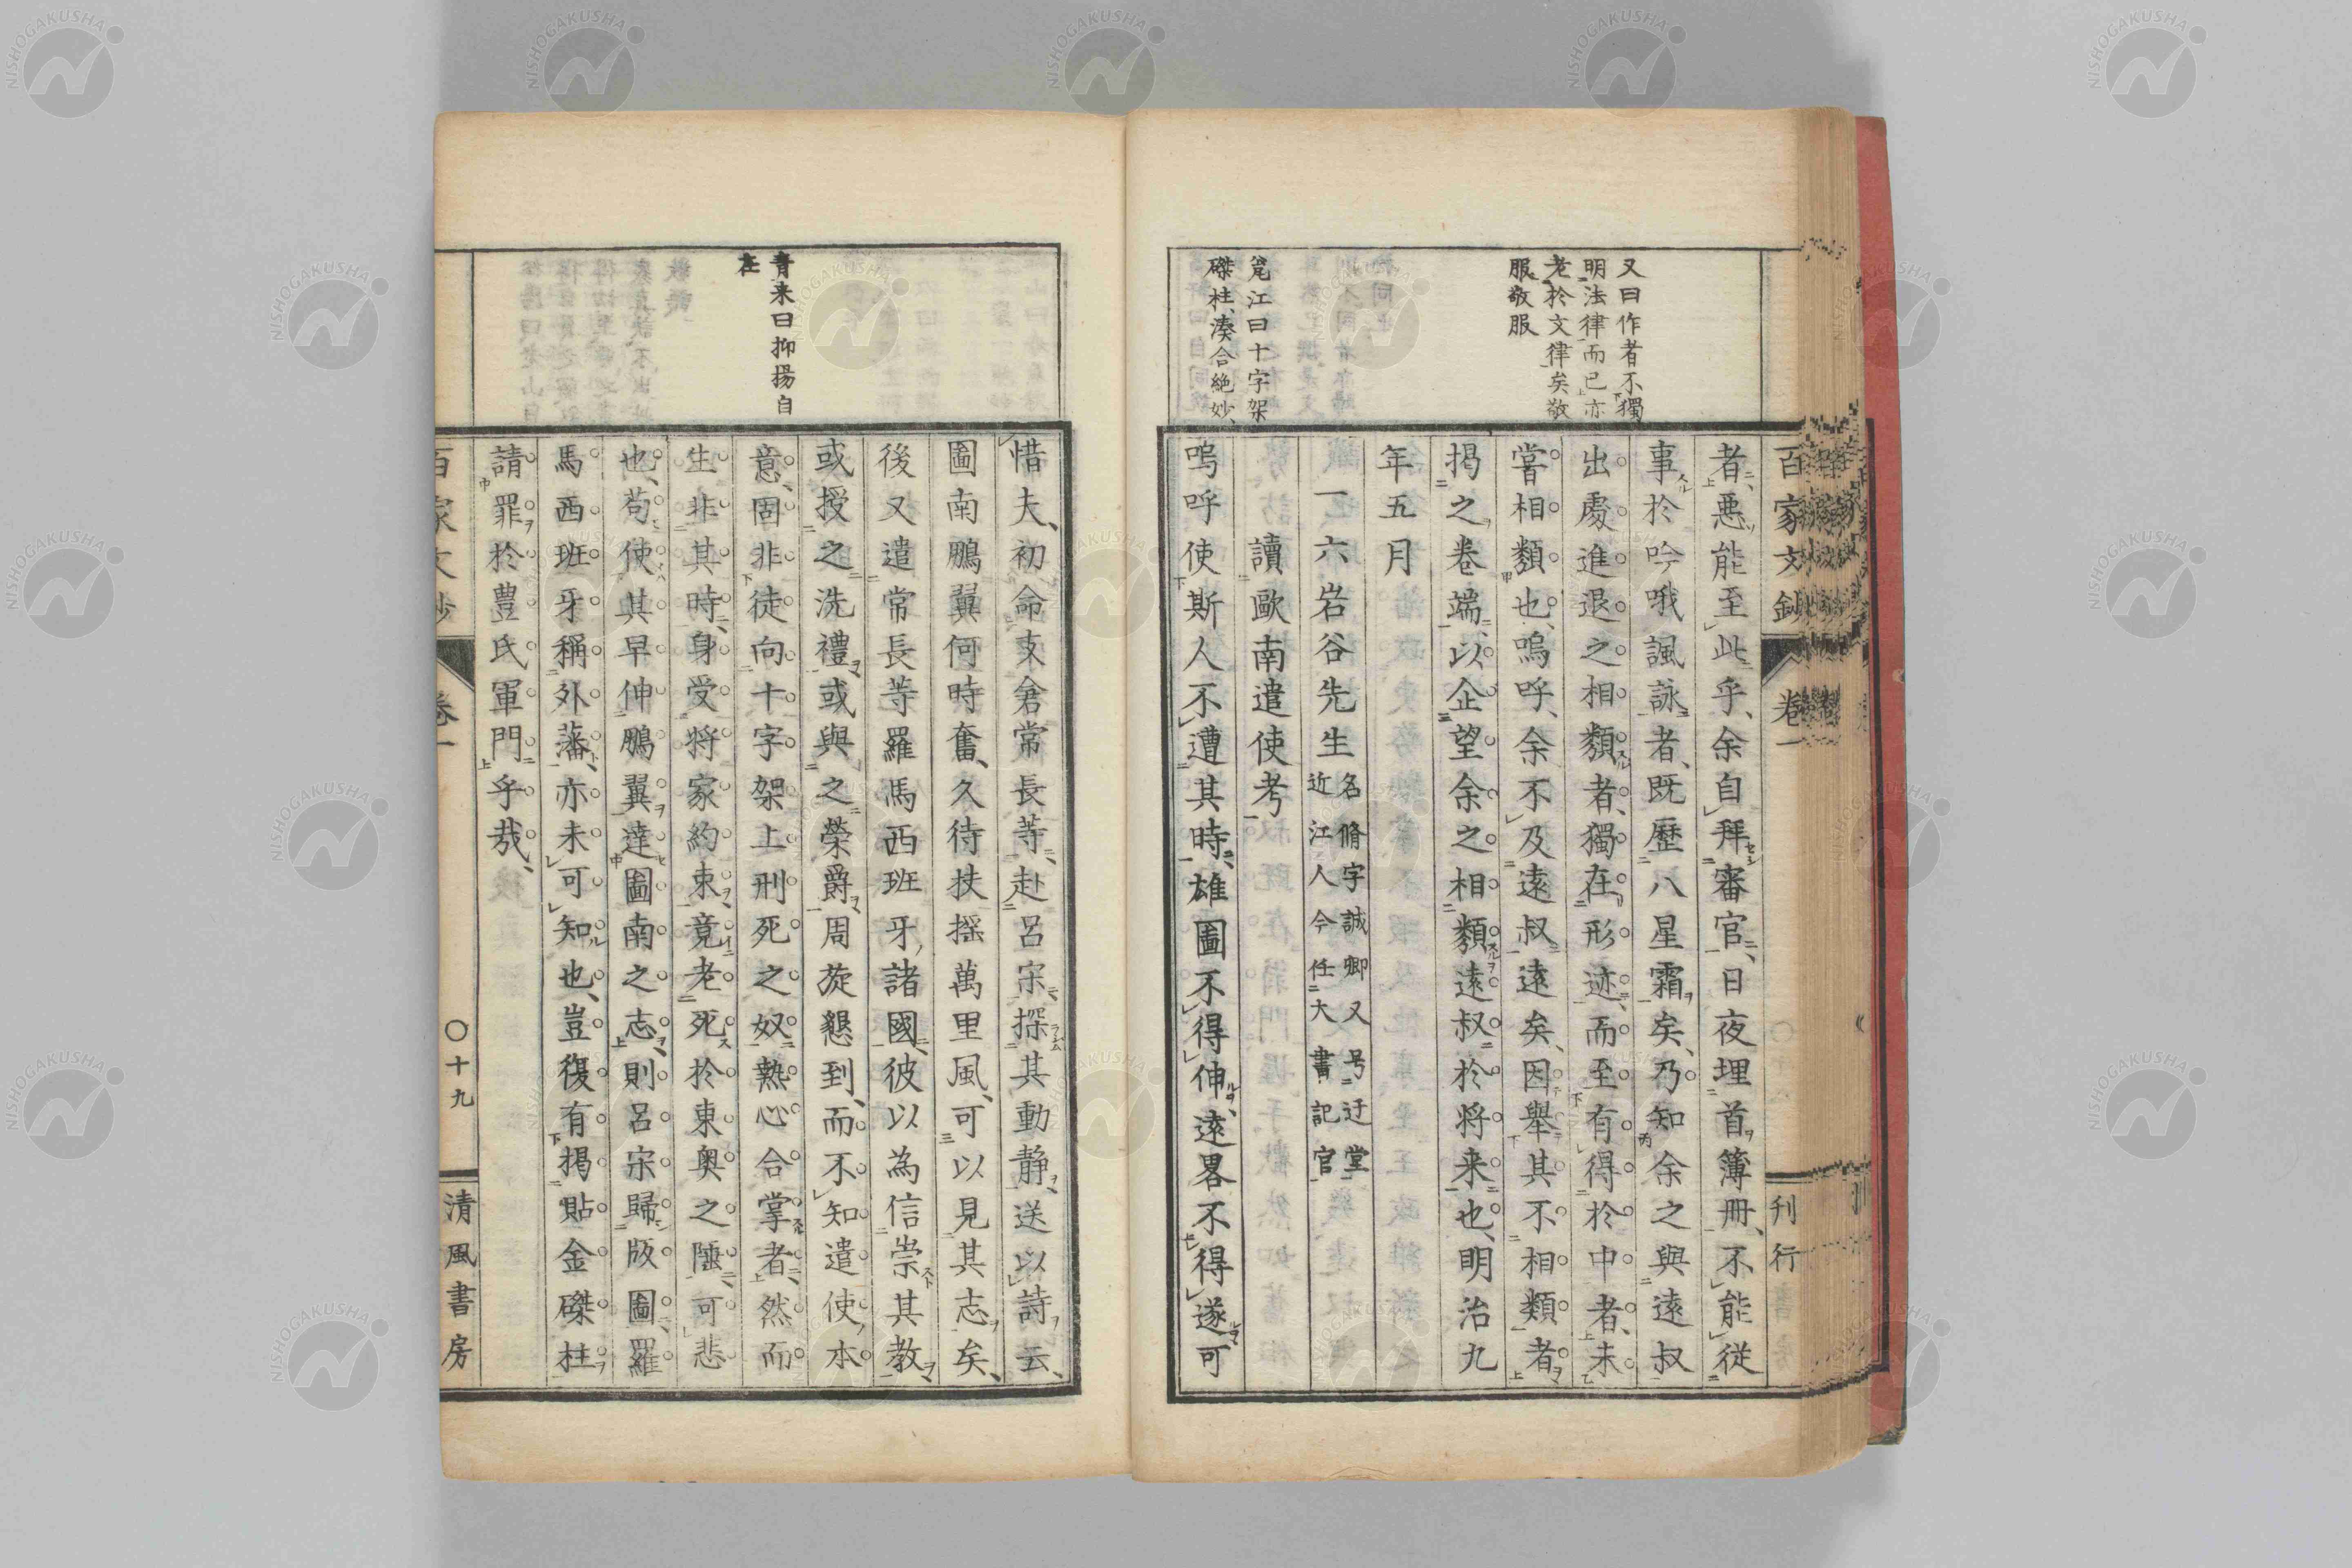 百家文鈔 卷一 刊行
又曰作者不獨
明法律而已亦
老於文律矣敬
服敬服
者、悪能至此乎、余自拜審官、日夜埋首簿冊、不能從
事於吟哦諷詠者、既歷八星霜矣、乃知余之與遠叔
出處進退之相類者、獨在形迹、而至有得於中者、未
嘗相類也、嗚呼、余不及遠叔遠矣、因舉其不相類者
揭之卷端、以企望余之相類遠叔於将来也、明治九
年五月
一六岩谷先生 名脩字誠卿又号迂堂
近江人今任大書記官
讀歐南遣使考
筥江曰十字架
磔柱、湊合絶妙、
嗚呼使斯人不遭其時、雄圖不得伸、遠畧不得遂可
惜夫、初命支倉常長等、赴呂宋、探其動静、送以詩云、
圖南鵬翼何時奮、久待扶搖萬里風、可以見其志矣、
後又遣常長等羅馬西班牙、諸國、彼以為信崇其教、
或授之洗禮、或與之榮爵、周旋懇到、而不知遣使本
青来曰抑揚自
在
意、固非徒向十字架上刑死之奴熱心合掌者、然而
生非其時、身受将家約束、竟老死於東奥之陲、可悲
也、苟使其早伸鵬翼、達圖南之志、則呂宋歸版圖、羅
馬西班牙稱外藩、亦未可知也、豈復有揭貼金磔柱
請罪於豊氏軍門乎哉、
百家文鈔 卷一 〇十九 清風書房
NISHOGAKUSHA